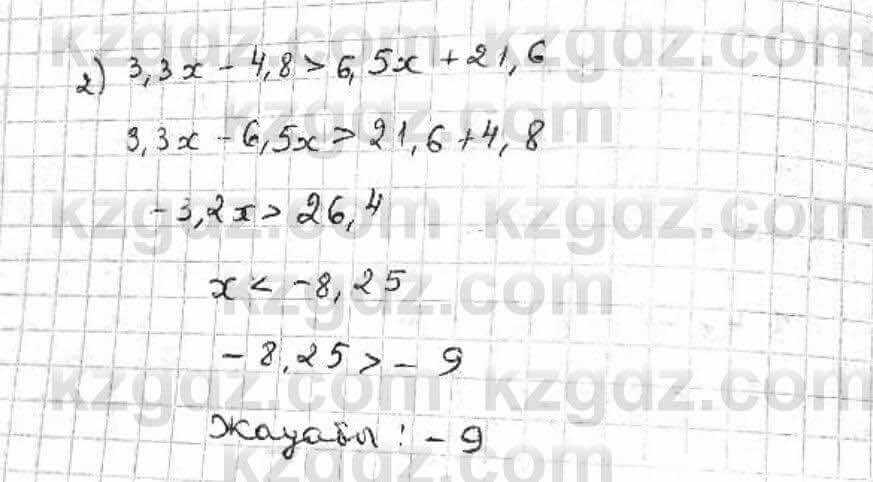 2) 3,3x - 4,8 > 6,5x + 21,6
3,3x - 6,5x > 21,6 + 4,8
-3,2x > 26,4
x < -8,25
-8,25 > -9
Жауабы: -9
kzgdz.com kzgdz.com
kzgdz.com
kzgdz.com kzgdz.com
kzgdz.com
kzgdz.com kzgdz.com
kzgdz.com